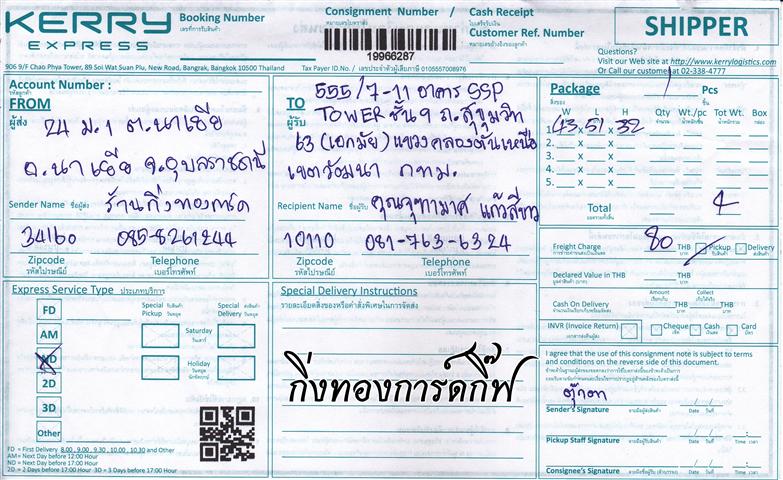 KERRY
EXPRESS
Booking Number
เลขที่การรับสินค้า
Consignment Number /
หมายเลขใบตราส่ง
Cash Receipt
ใบเสร็จรับเงิน
19966287
Customer Ref. Number
หมายเลขอ้างอิงของลูกค้า
SHIPPER
Questions?
Visit our Web site at http://www.kerrylogistics.com
Or Call our customer at 02-338-4777
906 9/F Chao Phya Tower, 89 Soi Wat Suan Plu, New Road, Bangrak, Bangkok 10500 Thailand
Tax Payer ID.No. / เลขประจำตัวผู้เสียภาษี 0105557008976
Account Number :
รหัสลูกค้า
FROM
ผู้ส่ง
24 ม.1 ต.นาเยีย
อ.นาเยีย จ.อุบลราชธานี
Sender Name ชื่อผู้ส่ง
ร้านกิ่งทองการ์ด
34160 085-8261244
Zipcode
รหัสไปรษณีย์
Telephone
เบอร์โทรศัพท์
TO
ผู้รับ
555/7-11 อาคาร SSP
TOWER ชั้น 9 ถ.สุขุมวิท
63 (เอกมัย) แขวงคลองตันเหนือ
เขตวัฒนา กทม.
Recipient Name ชื่อผู้รับ คุณจุฑามาศ แก้วสีขาว
10110 081-763-6324
Zipcode
รหัสไปรษณีย์
Telephone
เบอร์โทรศัพท์
Package
สิ่งของ
1 Pcs
ชิ้น
W L H Qty Wt./pc Tot Wt. Box
จำนวน น้ำหนัก/ชิ้น น้ำหนักรวม กล่อง
1. 43 x 51 x 32
2. x x
3. x x
4. x x
5. x x
Total 4
ยอดรวมทั้งสิ้น
Freight Charge 80 THB Pickup Delivery
บาท รับสินค้า ส่งสินค้า
Declared Value in THB THB
บาท
Amount Collect
เรียกเก็บ เก็บได้จริง
Cash On Delivery THB THB
บาท บาท
INVR (Invoice Return) Cheque Cash Card
เอกสารส่งคืน เช็ค เงินสด บัตร
Express Service Type ประเภทบริการ
FD
AM
ND
2D
3D
Other
Special Pickup
รับสินค้าวันหยุด
Special Delivery
ส่งสินค้าวันหยุด
Saturday
วันเสาร์
Holiday
วันหยุดนักขัตฤกษ์
FD = First Delivery 8.00 , 9.00 , 9.30 , 10.00 , 10.30 and Other
AM = Next Day before 12:00 Hour
ND = Next Day before 17:00 Hour
2D = 2 Days before 17:00 Hour 3D = 3 Days before 17:00 Hour
Special Delivery Instructions
รายละเอียดสิ่งของหรือคำสั่งพิเศษในการจัดส่ง
กิ่งทองการ์ดกิ๊ฟ
I agree that the use of this consignment note is subject to terms
and conditions on the reverse side of this document.
ตุ๊กตา
Sender's Signature ลายมือชื่อผู้ส่งสินค้า Date วันที่
Pickup Staff Signature Date วันที่ Time เวลา
Consignee's Signature ลายมือชื่อผู้รับ Date วันที่ Time เวลา